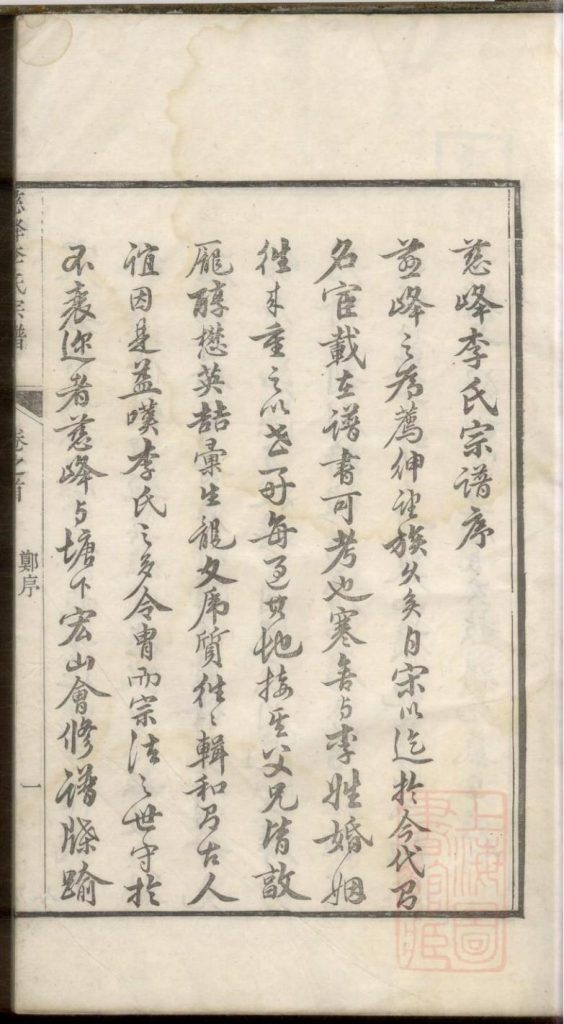 慈峰李氏宗谱序
慈峰之为薦绅望族久矣自宋以迄於今代有
名宦載在谱書可考也寒舍与李姓婚姻
往来重之以世好每过其地接其父兄皆敦
龐醇懋英喆彙生龍文席質往〻輯和有古人
誼因是益嘆李氏之多令胄而宗法之世守於
不衰迩者慈峰与塘下宏山會修谱牒踰
慈峰李氏宗譜
卷之首
鄭序
一
上海圖書館藏